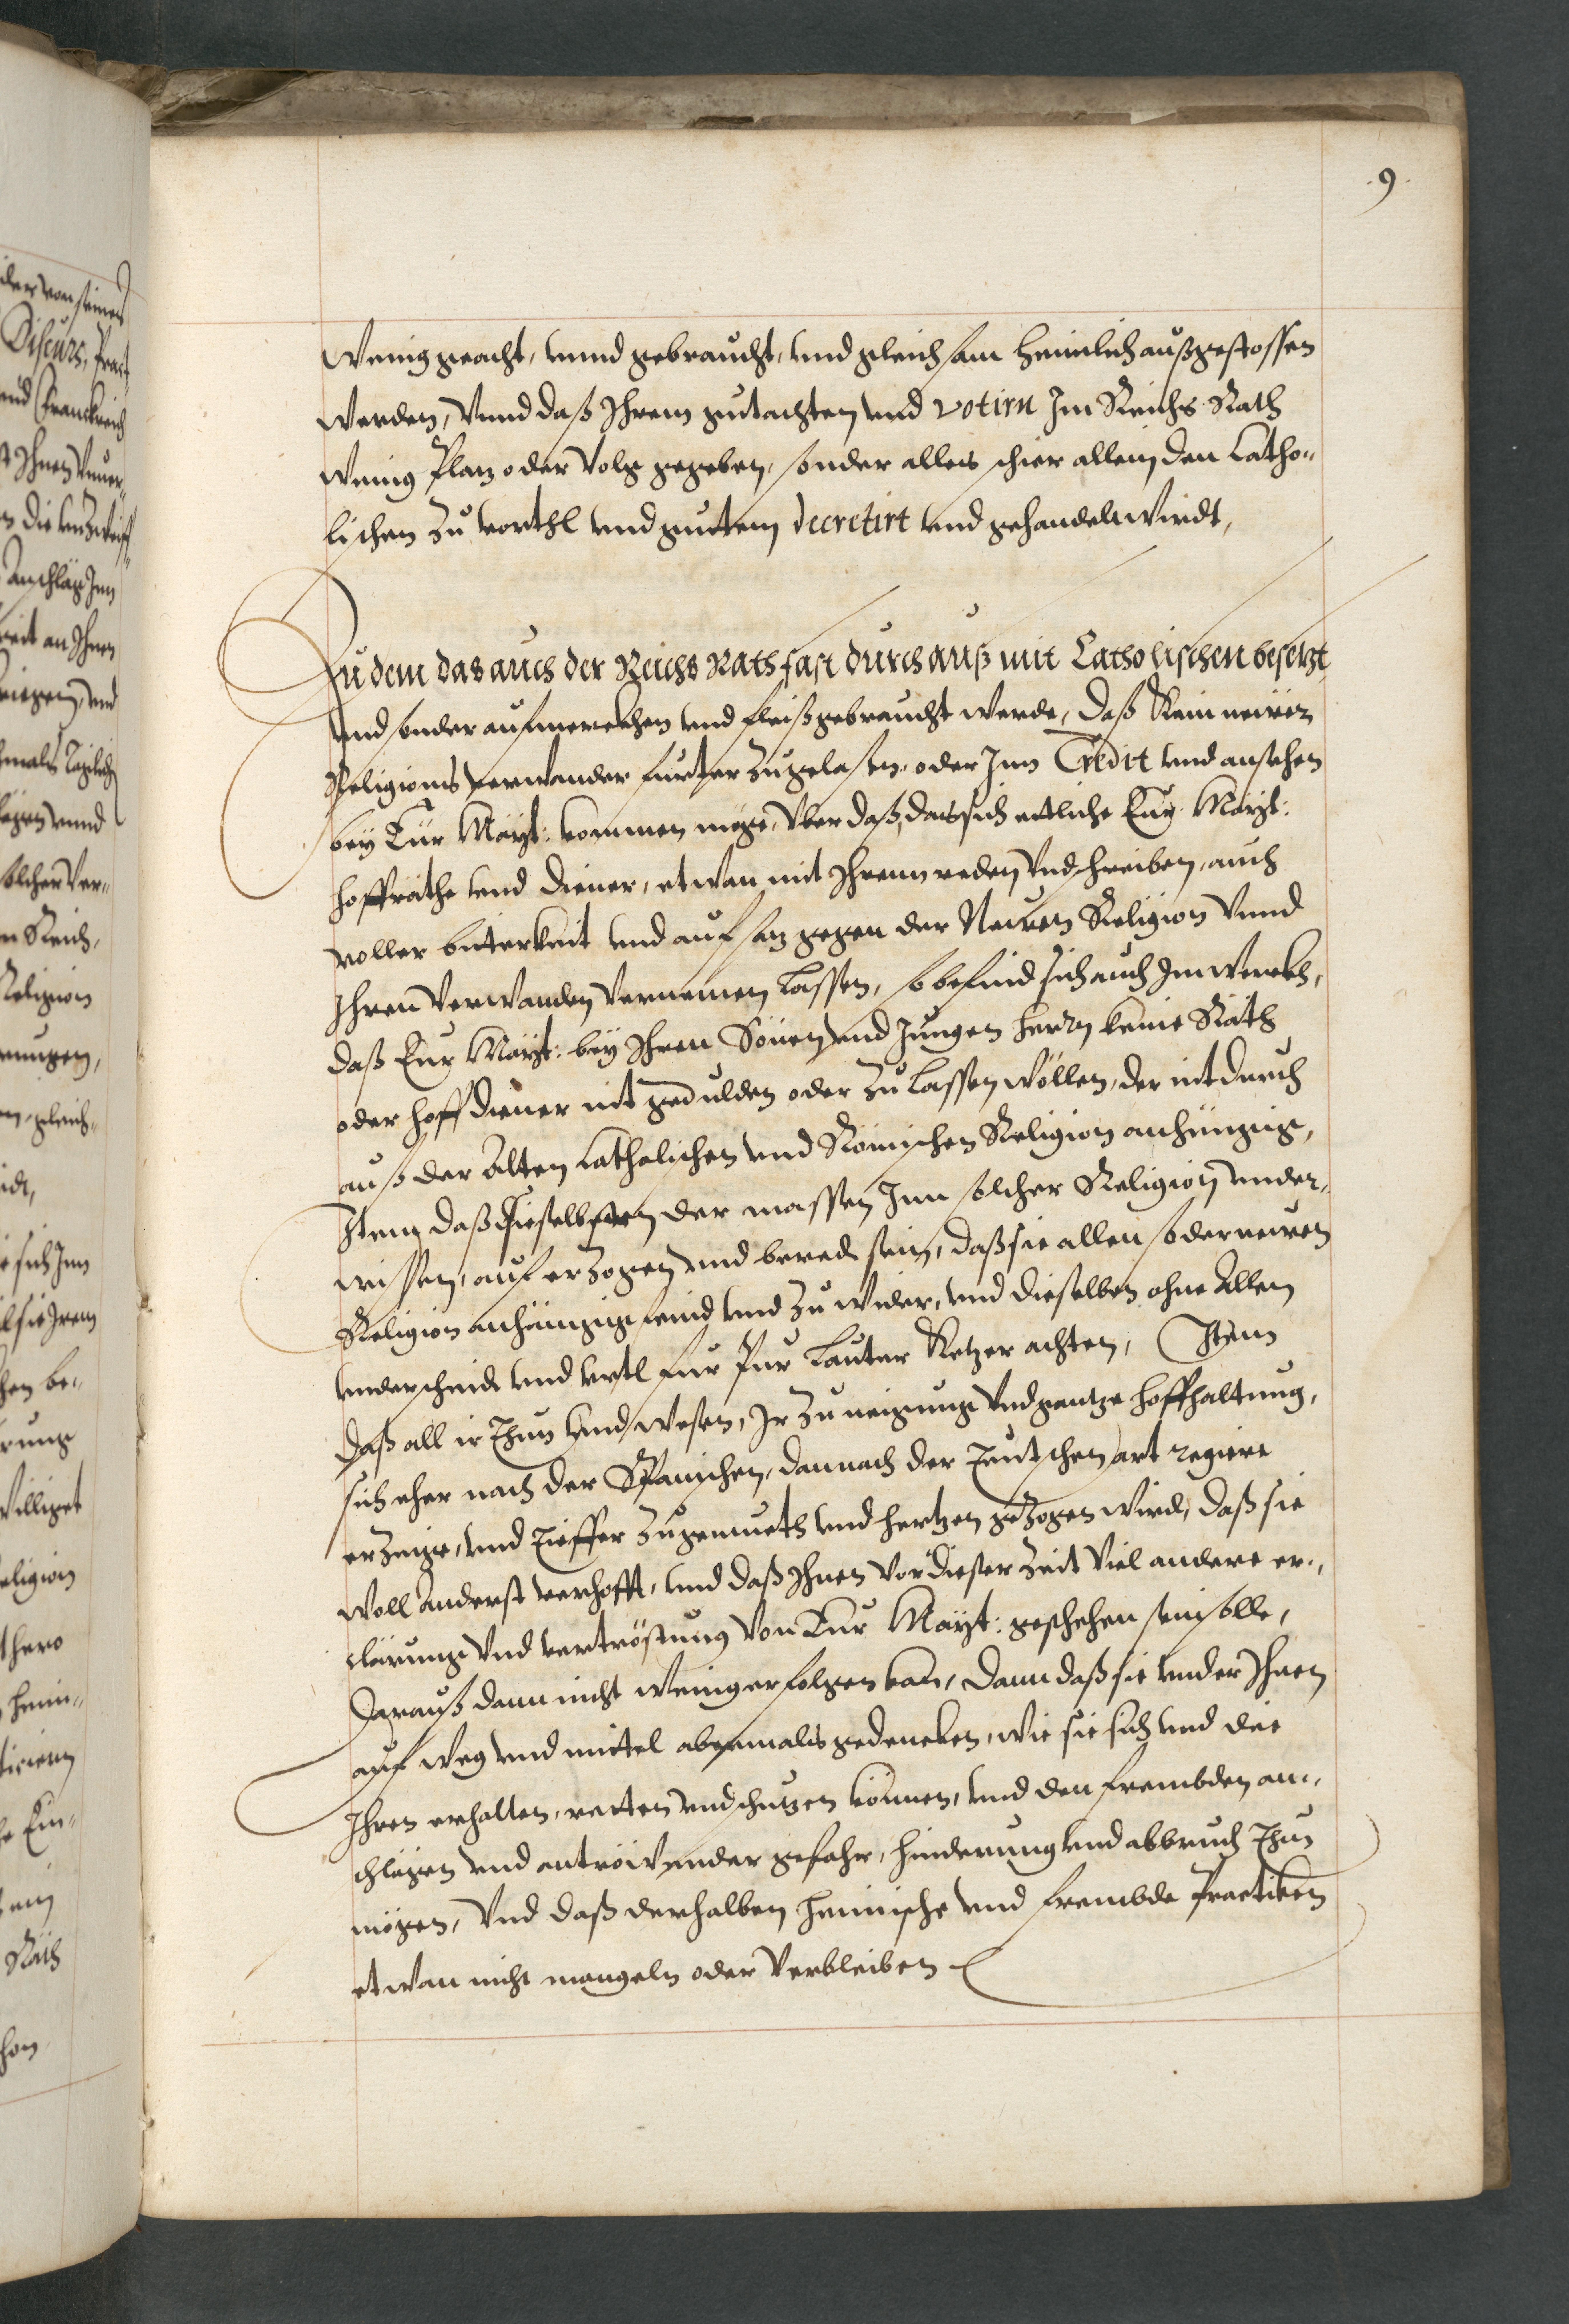 .9.
Wenig geacht, unnd gebraucht, und gleichsam heimlich außgestossen
werden, Unnd daß Ihrem gutachten und votirn Im Reichs Rath
wenig Plaz oder Volg gegeben, sonder alles schier allein den Catho„
lischen zu vorthl und guttem decretirt und gehandelt wirdt,
Zu dem das auch der Reichs Rath fast durch auß mit Catholischen besetzt
und sonder aufmerckhen und fleiß gebraucht werde, daß kain neuer
Religions verwander further zugelasen, oder Inn Credit und ansehen
bey Eur Mayt: kommen möge, Uber daß, das sich etliche Eur Mayt:
hoffräthe und diener, etwan mit Ihrem reden und schreiben, auch
voller bitterkeit und aufsaz gegen der Neuen Religion Unnd
Ihren Verwanden vernemen lassen, so befind sich auch Im werckh,
daß Eur Mayt: bey Ihren Sönen und Jungen herrn keine Räth
oder hoff diener nit gedulden oder zu lassen wöllen, der nit durch
auß der Alten Catholischen und Römischen Religion anhüngig,
Item daß dieselbsten der massen Inn solcher Religion under„
wissen, auferzogen und beredt sein, daß sie allen so der neuen
Religion anhängig feind und zu wider, und dieselben ohne Allen
underscheid und urtl für Pur lauter Ketzer achten, Item
daß all ir Thun und wesen, Ir zuneigung und gantze hoffhaltung,
sich eher nach der Spanischen, dann nach der Teutschen art regiere
erzeige, und tieffer zu gemueth und hertzen gezogen wird, daß sie
woll anderst verhofft, und daß Ihnen vor dieser Zeit viel andere er„
clärung und vertröstung von Eur Mayt: geschehen sein solle,
Darauß dann nicht weniger folgen kan, dann daß sie under Ihnen
auf weg und mittel abermals gedencken, wie sie sich und die
Ihren erhalten, retten und schuzen können, und den frembden an„
schlägen und antröwender gefahr, hinderung und abbruch Thun
mögen, Und daß derhalben heimische und frembde Practiken
etwan nicht mangeln oder verbleiben